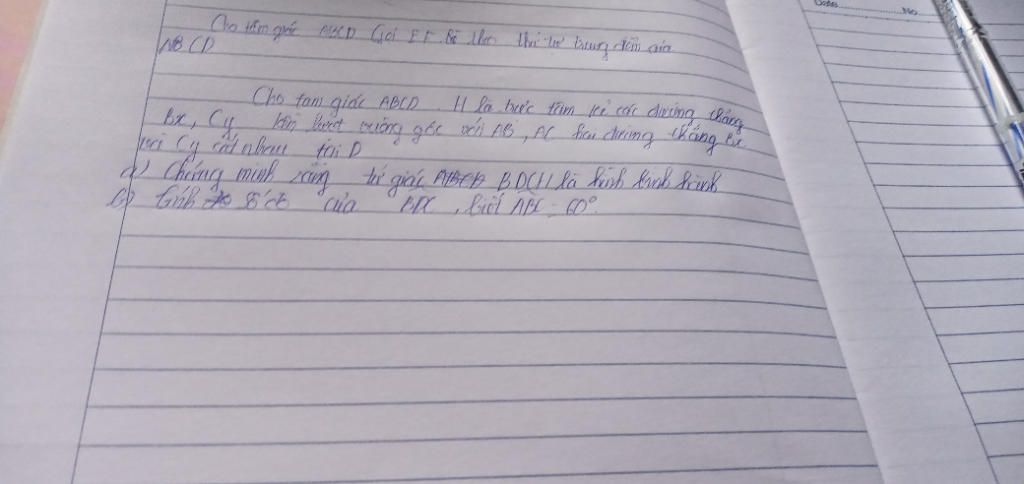 Date No
Cho tam giác ABCD Gọi E F là theo thứ tự trung điểm của
AB CD
Cho tam giác ABCD . H là trực tâm kẻ các đường thẳng
Bx, Cy lần lượt vuông góc với AB, AC hai đường thẳng Bx
với Cy cắt nhau tại D
a) Chứng minh rằng tứ giác BDCH là hình bình hành
b) tính số đo của BDC, biết = 60°.